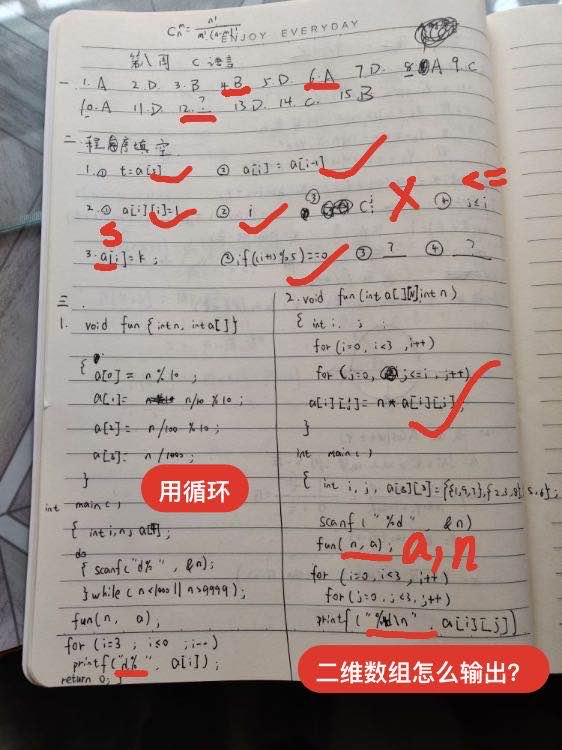 Cₙᵐ = n! / m!(n-m)!
ENJOY EVERYDAY
第八周 C 语言
一. 1. A 2. D 3. B 4. B 5. D 6. A 7. D. 8. A 9. C
10. A 11. D. 12. ? 13. D. 14. C. 15. B
二. 程序填空
1. ① t=a[3] ② a[i] = a[i-1]
2. ① a[i][i]=1 ② i ③ X ④ j≤i <=
s
3. a[i]=k; ② if(i+1)%5)==0 ③ ? ④ ?
三.
1. void fun {int n, int a[]}
{
a[0] = n%10;
a[1]= n/10%10;
a[2]= n/100%10;
a[3]= n/1000;
}
用循环
int main()
{ int i, n, a[4];
do
{ scanf("d%", &n);
}while(n<1000||n>9999);
fun(n, a);
for (i=3; i≤0; i--)
printf("d%", a[i]);
return 0; }
2. void fun(int a[][N] int n)
{ int i, j;
for (i=0, i<3, i++)
for (j=0, j<=i, j++)
a[i][j] = n * a[i][j];
}
int main()
{ int i, j, a[3][3]={{1,9,7},{2,3,8},5,6};
scanf("%d", &n)
fun(n, a); a, n
for (i=0, i<3, i++)
for(j=0, j<3, j++)
printf("%d\n", a[i][j])
二维数组怎么输出?